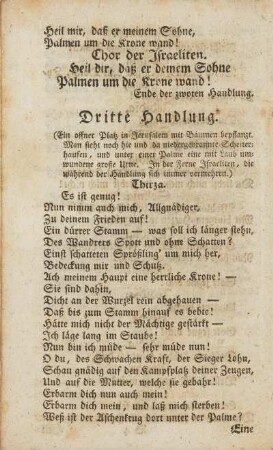 Heil mir, daß er meinem Sohne,
Palmen um die Krone wand!
Chor der Israeliten.
Heil dir, daß er deinem Sohne
Palmen um die Krone wand!
Ende der zwoten Handlung.
Dritte Handlung.
(Ein offner Platz in Jerusalem mit Bäumen bepflanzt.
Man sieht noch hie und da niedergebrannte Scheiter-
haufen, und unter einer Palme eine mit Laub um-
wundene große Urne. In der Ferne Israeliten, die
während der Handlung sich immer vermehren.)
Thirza.
Es ist genug!
Nun nimm auch mich, Allgnädiger,
Zu deinem Frieden auf!
Ein dürrer Stamm — was soll ich länger stehen,
Des Wandrers Spott und ohne Schatten?
Einst schatteten Sprößling' um mich her,
Bedeckung mir und Schutz.
Ach meinem Haupt eine herrliche Krone! —
Sie sind dahin,
Dicht an der Wurzel rein abgehauen —
Daß bis zum Stamm hinauf es bebte!
Hätte mich nicht der Mächtige gestärkt —
Ich läge lang im Staube!
Nun bin ich müde — sehr müde nun!
O du, des Schwachen Kraft, der Sieger Lohn,
Schau gnädig auf den Kampfplatz deiner Zeugen,
Und auf die Mutter, welche sie gebahr!
Erbarm dich nun auch mein!
Erbarm dich mein, und laß mich sterben!
Weß ist der Aschenkrug dort unter der Palme?
Eine